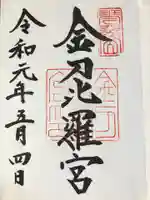 金刀比羅宮
令和元年五月四日